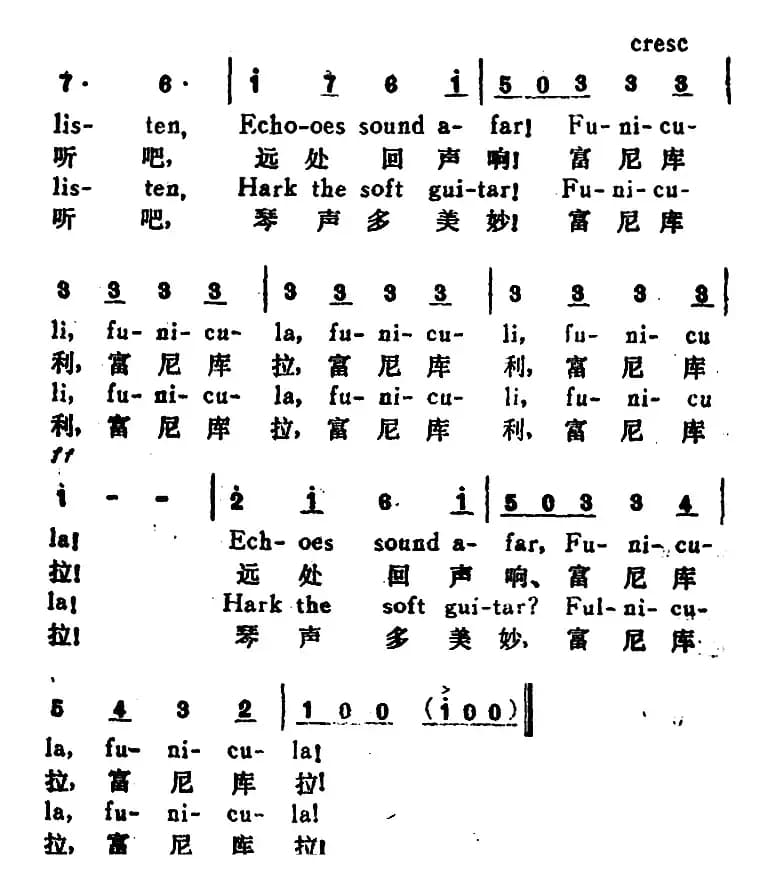 cresc
7· 6· | i 7 6 i | 5 0 3 3 3 |
lis- ten, Echo-oes sound a- far! Fu- ni- cu-
听 吧, 远 处 回 声 响! 富 尼 库
lis- ten, Hark the soft gui-tar! Fu- ni- cu-
听 吧, 琴 声 多 美 妙! 富 尼 库
3 3 3 3 | 3 3 3 3 | 3 3 3 3 |
li, fu- ni- cu- la, fu- ni- cu- li, fu- ni- cu
利, 富 尼 库 拉, 富 尼 库 利, 富 尼 库
li, fu- ni- cu- la, fu- ni- cu- li, fu- ni- cu
利, 富 尼 库 拉, 富 尼 库 利, 富 尼 库
ff
i - - | 2 i 6 i | 5 0 3 3 4 |
la! Ech- oes sound a- far, Fu- ni- cu-
拉! 远 处 回 声 响、 富 尼 库
la! Hark the soft gui-tar? Ful- ni- cu-
拉! 琴 声 多 美 妙, 富 尼 库
5 4 3 2 | 1 0 0 (i 0 0)
la, fu- ni- cu- la!
拉, 富 尼 库 拉!
la, fu- ni- cu- la!
拉, 富 尼 库 拉!